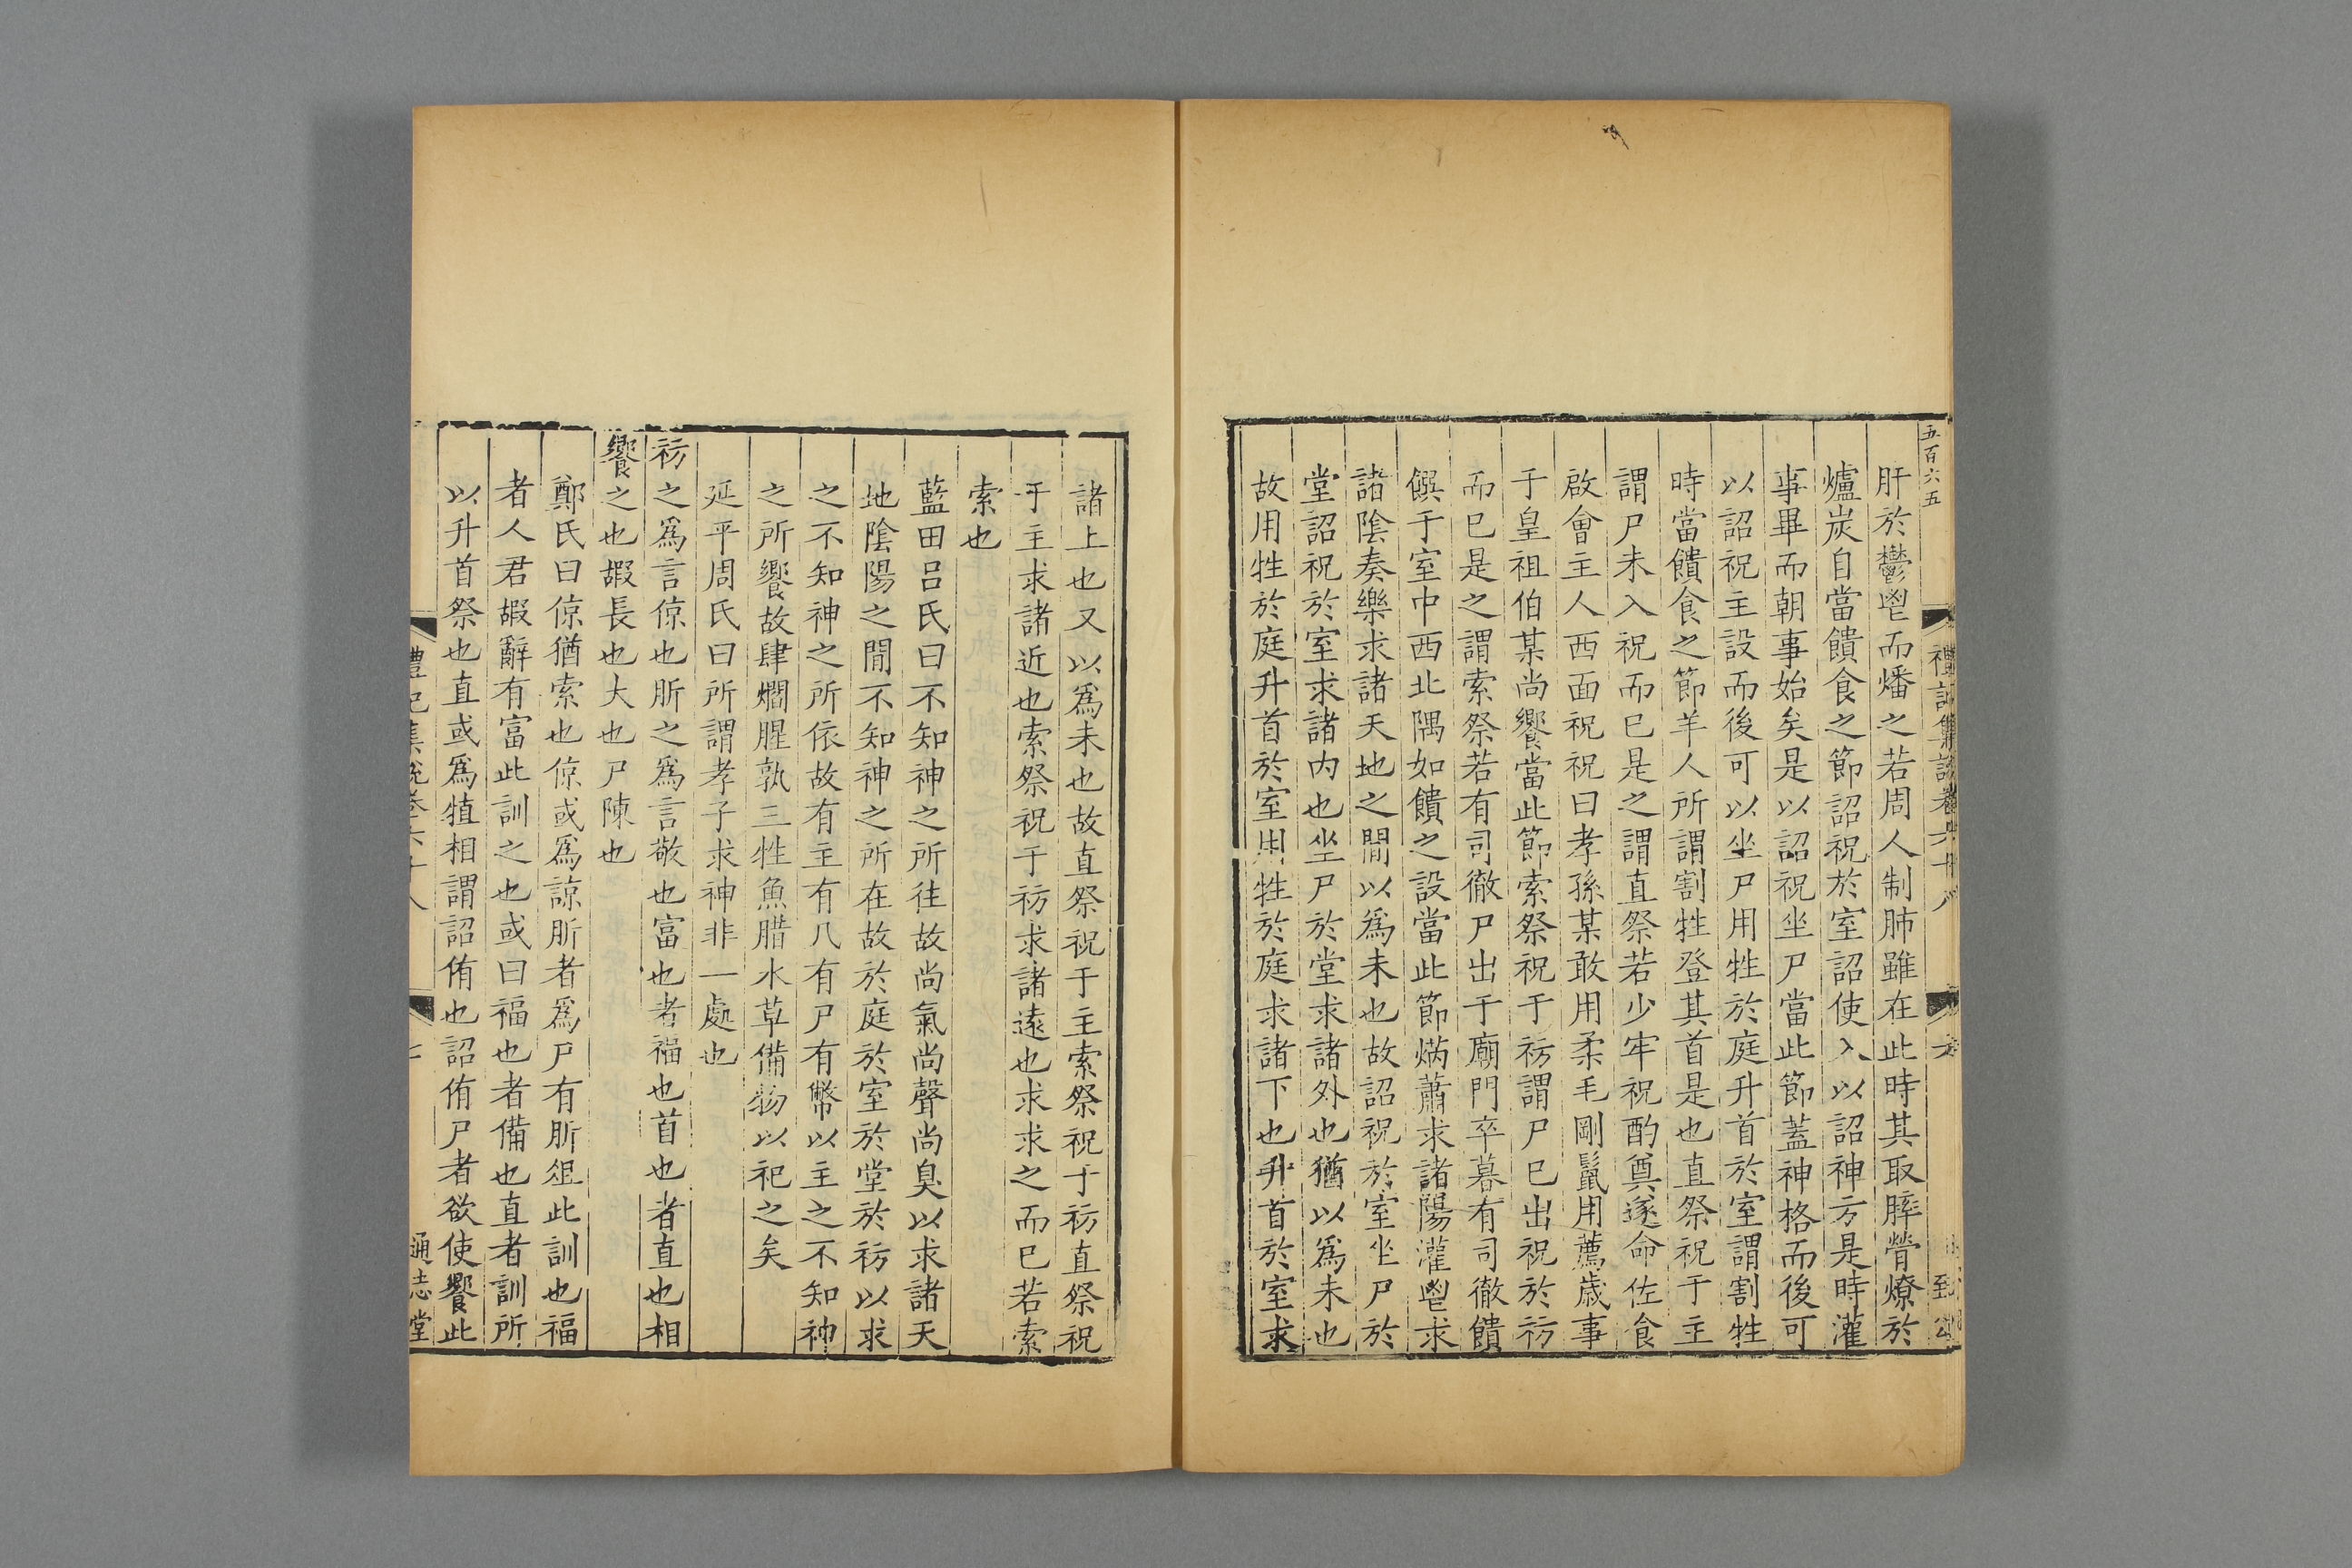 五百六五
禮記集說卷六十八
六
至公
肝於鬱鬯而燔之若周人制肺雖在此時其取膟膋燎於
爐炭自當饋食之節詔祝於室詔使入以詔神方是時灌
事畢而朝事始矣是以詔祝坐尸當此節蓋神格而後可
以詔祝主設而後可以坐尸用牲於庭升首於室謂割牲
時當饋食之節羊人所謂割牲登其首是也直祭祝于主
謂尸未入祝而已是之謂直祭若少牢祝酌奠遂命佐食
啟會主人西面祝祝曰孝孫某敢用柔毛剛鬣用薦歲事
于皇祖伯某尚饗當此節索祭祝于祊謂尸已出祝於祊
而已是之謂索祭若有司徹尸出于廟門卒暮有司徹饋
饌于室中西北隅如饋之設當此節焫蕭求諸陽灌鬯求
諸陰奏樂求諸天地之閒以爲未也故詔祝於室坐尸於
堂詔祝於室求諸内也坐尸於堂求諸外也猶以爲未也
故用牲於庭升首於室用牲於庭求諸下也升首於室求
諸上也又以爲未也故直祭祝于主索祭祝于祊直祭祝
于主求諸近也索祭祝于祊求諸遠也求求之而已若索
索也
藍田呂氏曰不知神之所往故尚氣尚聲尚臭以求諸天
地陰陽之閒不知神之所在故於庭於室於堂於祊以求
之不知神之所依故有主有几有尸有幣以主之不知神
之所饗故肆爓腥孰三牲魚腊水草備物以祀之矣
延平周氏曰所謂孝子求神非一處也
祊之爲言倞也肵之爲言敬也富也者福也首也者直也相
饗之也嘏長也大也尸陳也
鄭氏曰倞猶索也倞或爲諒肵者爲尸有肵俎此訓也福
者人君嘏辭有富此訓之也或曰福也者備也直者訓所
以升首祭也直或爲犆相謂詔侑也詔侑尸者欲使饗此
禮記集說卷六十八
七
通志堂